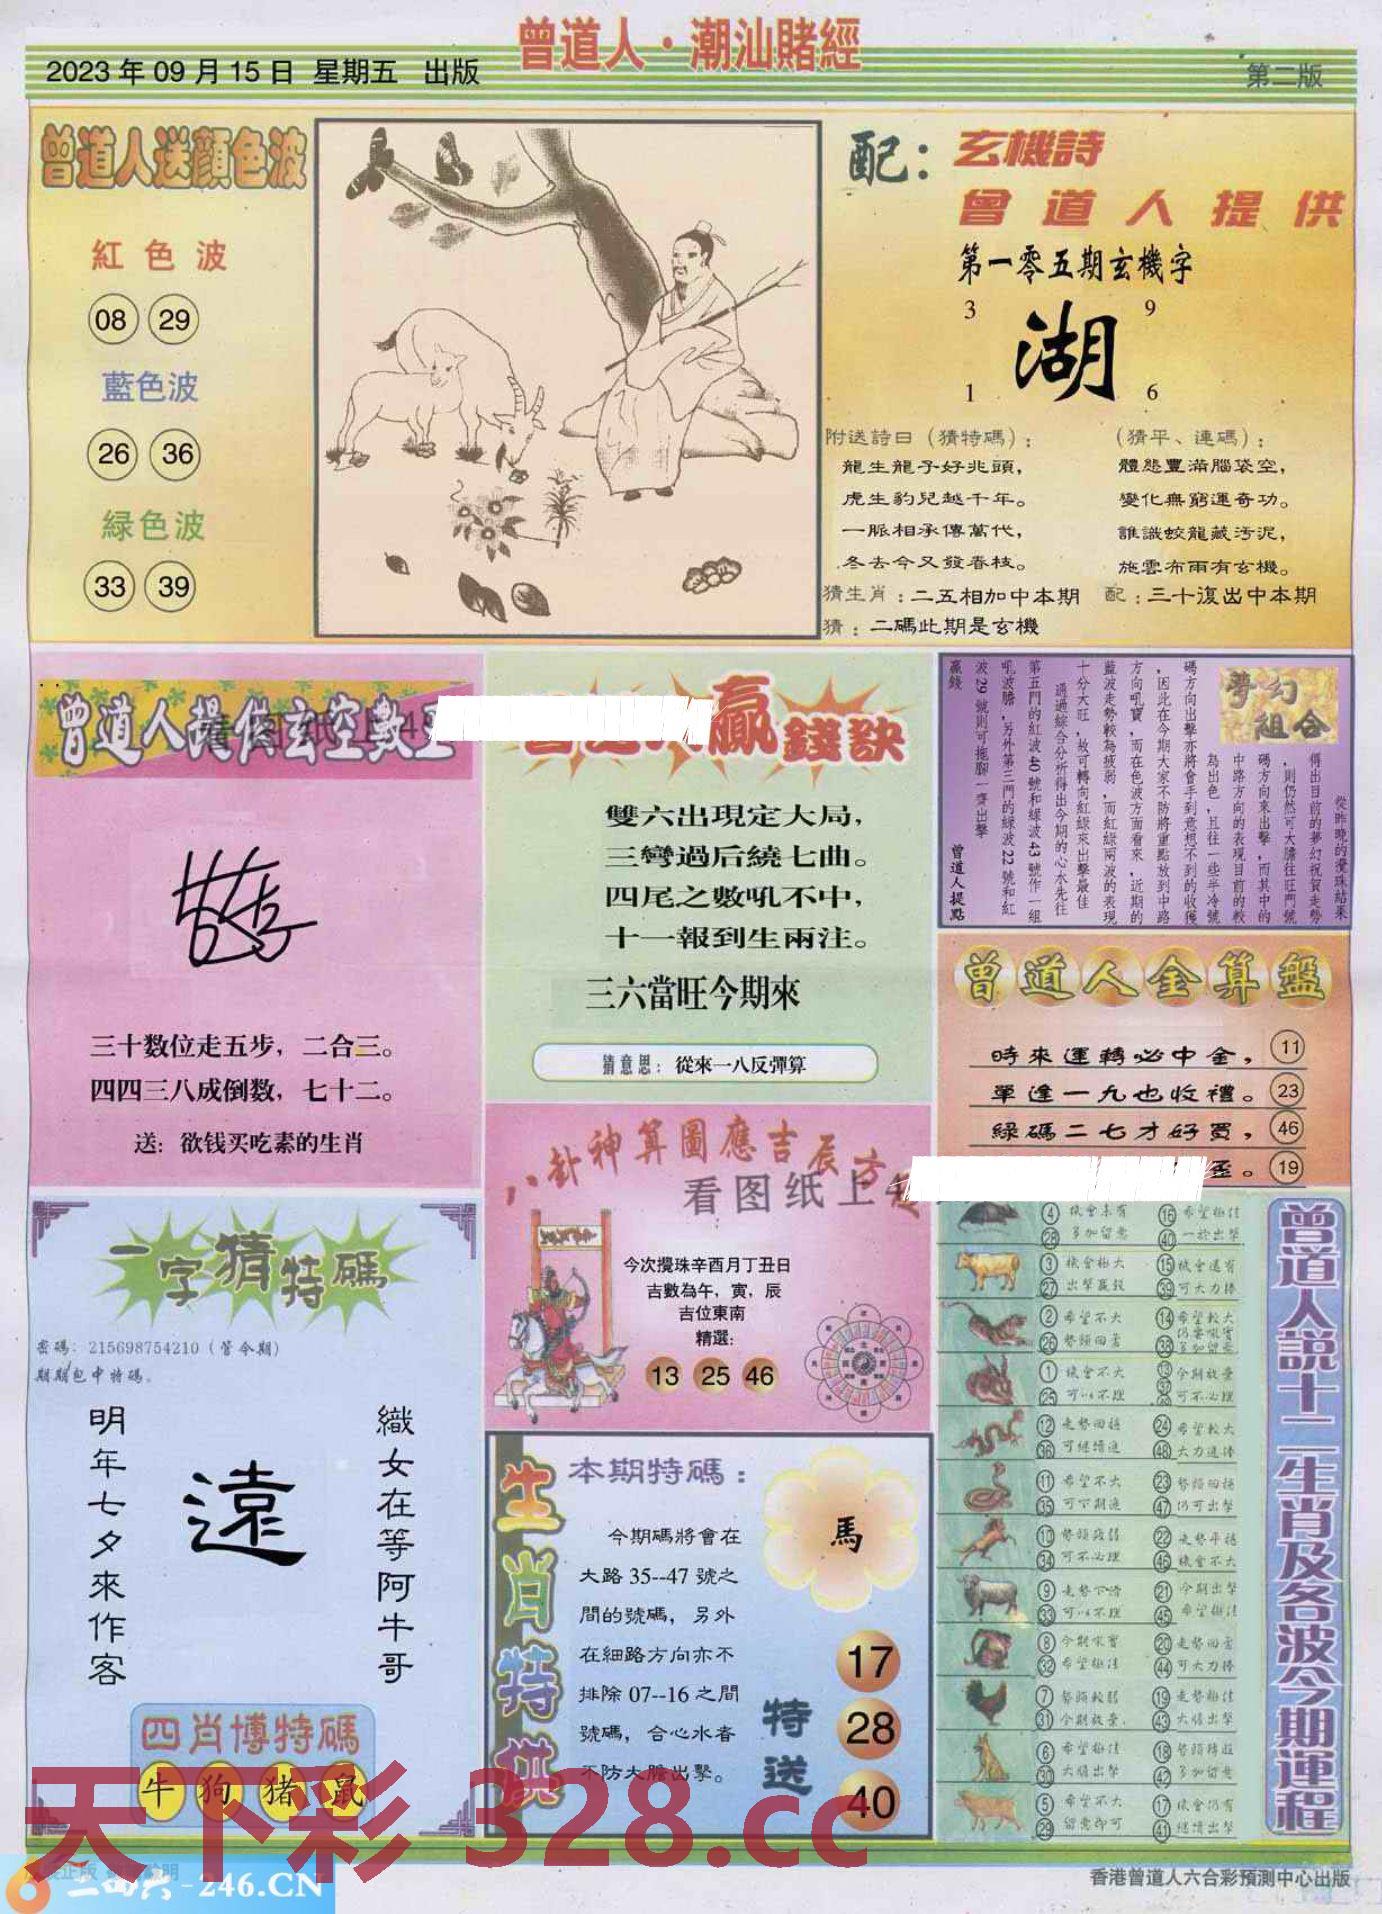 曾道人·潮汕賭經
2023 年 09 月 15 日 星期五 出版
第二版
曾道人送顔色波
紅色波
08 29
藍色波
26 36
緑色波
33 39
配：玄機詩
曾道人提供
第一零五期玄機字
3 9
湖
1 6
附送詩曰（猜特碼）：
龍生龍子好兆頭，
虎生豹兒越千年。
一脈相承傳萬代，
冬去今又發春枝。
（猜平、連碼）：
體態豐滿腦袋空，
變化無窮運奇功。
誰識蛟龍藏污泥，
施雲布雨有玄機。
猜生肖：二五相加中本期
配：三十復出中本期
猜：二碼此期是玄機
曾道人提供玄空數
三十数位走五步，二合三。
四四三八成倒数，七十二。
送：欲钱买吃素的生肖
贏錢訣
雙六出現定大局，
三彎過后繞七曲。
四尾之數吼不中，
十一報到生兩注。
三六當旺今期來
猜意思：從來一八反彈算
夢幻組合
從昨晚的攪珠結果
得出目前的夢幻祝賀走勢
，則仍然可大膽往旺門號
碼方向來出擊，而其中的
中路方向的表現目前的較
為出色，且往一些半冷號
碼方向出擊亦將會手到意想不到的收獲
，因此在今期大家不防將重點放到中路
方向吼寶，而在色波方面看來，近期的
藍波走勢較為疲弱，而紅綠兩波的表現
十分大旺，故可轉向紅綠來出擊最佳
通過綜合分析得出今期的心水先往
第五門的紅波40號和綠波43號作一組
吼波膽，另外第三門的綠波22號和紅
波29號則可拖腳一齊出擊
贏錢
曾道人提點
曾道人金算盤
時來運轉必中金， 11
單逢一九也收禮。 23
綠碼二七才好買， 46
。 19
八卦神算圖應吉辰方
看图纸上
今次攪珠辛酉月丁丑日
吉數為午，寅，辰
吉位東南
精選：
13 25 46
一字猜特碼
密碼：215698754210（管今期）
期期包中特碼。
織女在等阿牛哥
遠
明年七夕來作客
四肖博特碼
牛 狗 猪 鼠
生肖特供
本期特碼：
今期碼將會在
大路 35--47 號之
間的號碼，另外
在細路方向亦不
排除 07--16 之間
號碼，合心水者
不防大膽出擊。
馬
特送
17
28
40
曾道人説十二生肖及各波今期運程
4 機會未有 16 希望極佳
28 多加留意 40 一於出擊
3 機會極大 15 機會還有
27 出擊贏錢 39 可大力捧
2 希望不大 14 希望較大
26 勢頭回落 38
1 機會不大 今期放棄
25 可以不理 可不必理
12 走勢回穩 24 希望較大
36 可繼續追 48 大力追捧
11 希望不大 23 勢頭回穩
35 可下期追 47 仍可出擊
10 勢頭疲弱 22 走勢平穩
34 可不必理 46 機會不大
9 走勢下滑 21 今期出擊
33 可以不理 45 希望極佳
8 今期吼實 20 走勢回落
32 希望極佳 44 可大力捧
7 勢頭較弱 19 走勢極佳
31 今期放棄. 43 大膽出擊
6 希望極佳 18
30 大膽出擊 42 多加留意
5 希望不大 17 機會仍有
29 留意即可 41 繼續出擊
天下彩 328.cc
二四六 - 246.CN
香港曾道人六合彩預測中心出版